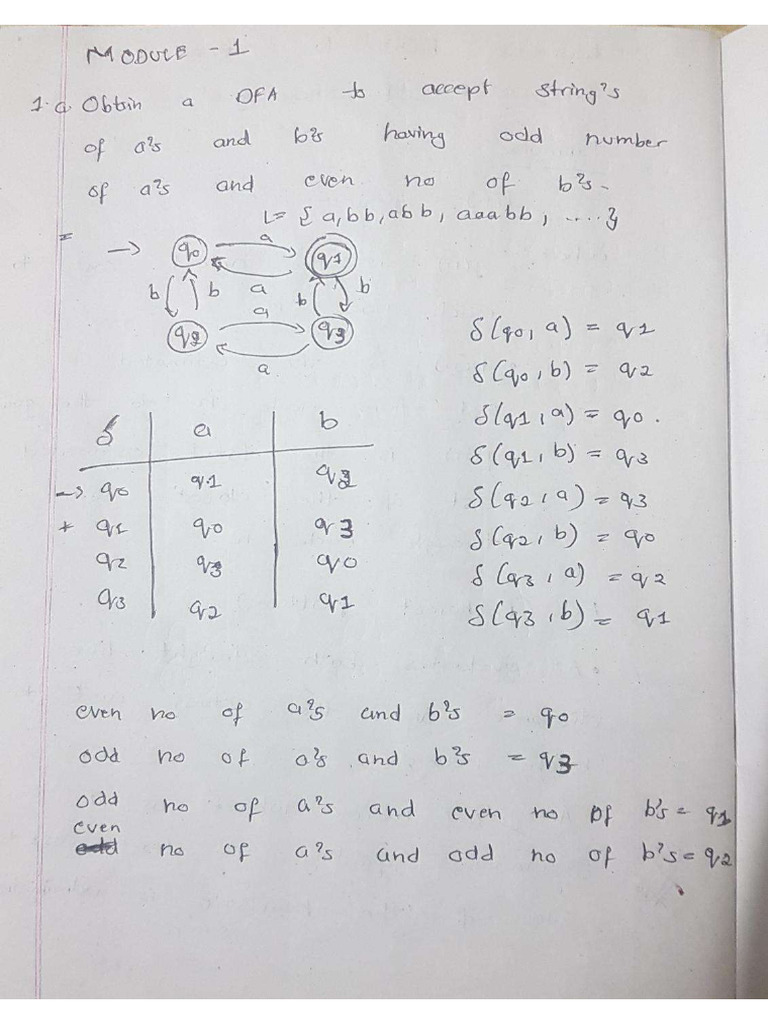 MODULE - 1
1.a Obtain a DFA to accept string's
of a's and b's having odd number
of a's and even no of b's.
L= { a, bb, abb, aaabb, .....}
= → q0 a q1
b b a b b
a
q2 q3
a
δ(q0, a) = q1
δ(q0, b) = q2
δ(q1, a) = q0.
δ(q1, b) = q3
δ(q2, a) = q3
δ(q2, b) = q0
δ(q3, a) = q2
δ(q3, b) = q1
δ a b
→ q0 q1 q2
* q1 q0 q3
q2 q3 q0
q3 q2 q1
even no of a's and b's = q0
odd no of a's and b's = q3
odd no of a's and even no of b's = q1
even no of a's and odd no of b's = q2